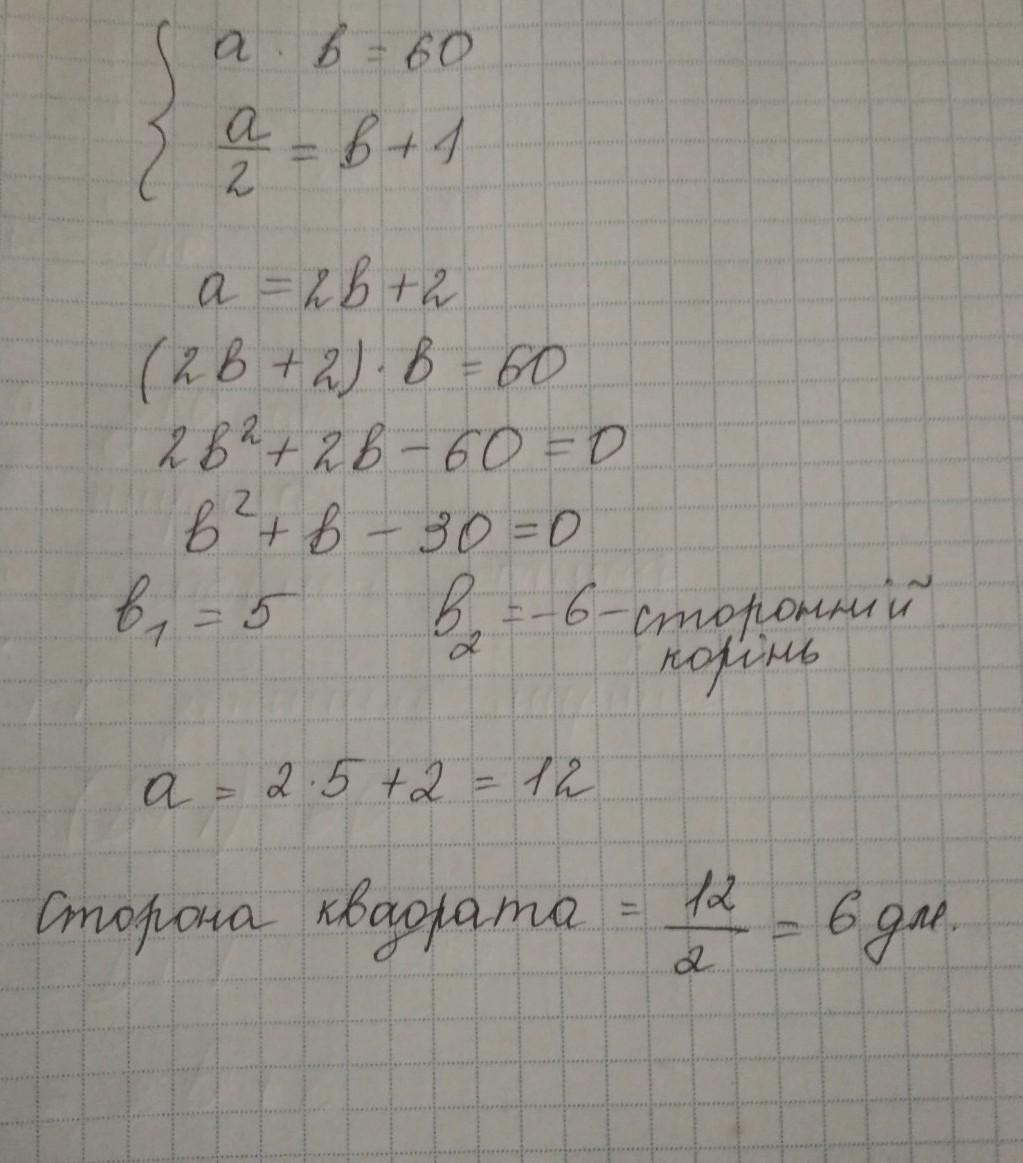 a · b = 60
a/2 = b + 1
a = 2b + 2
(2b + 2) · b = 60
2b² + 2b - 60 = 0
b² + b - 30 = 0
b₁ = 5 b₂ = -6 - сторонній
корінь
a = 2·5 + 2 = 12
Сторона квадрата = 12/2 = 6 дм.